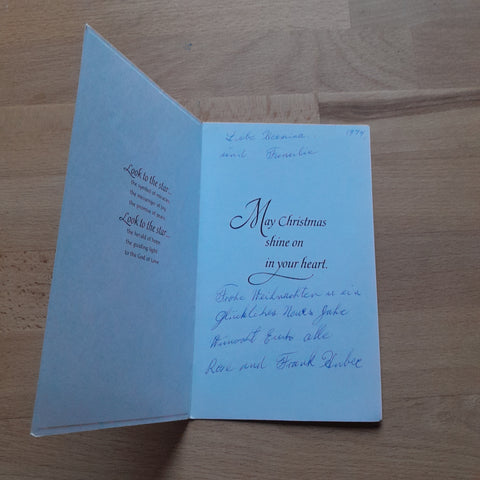 Look to the star...
the symbol of miracles,
the messenger of joy,
the promise of peace.
Look to the star...
the herald of hope,
the guiding light
to the God of Love
1974
Liebe
und Familie
May Christmas
shine on
in your heart.
Frohe Weihnachten u ein
Glückliches Neues Jahr
Wünscht Euch alle
Rose and Frank Huber